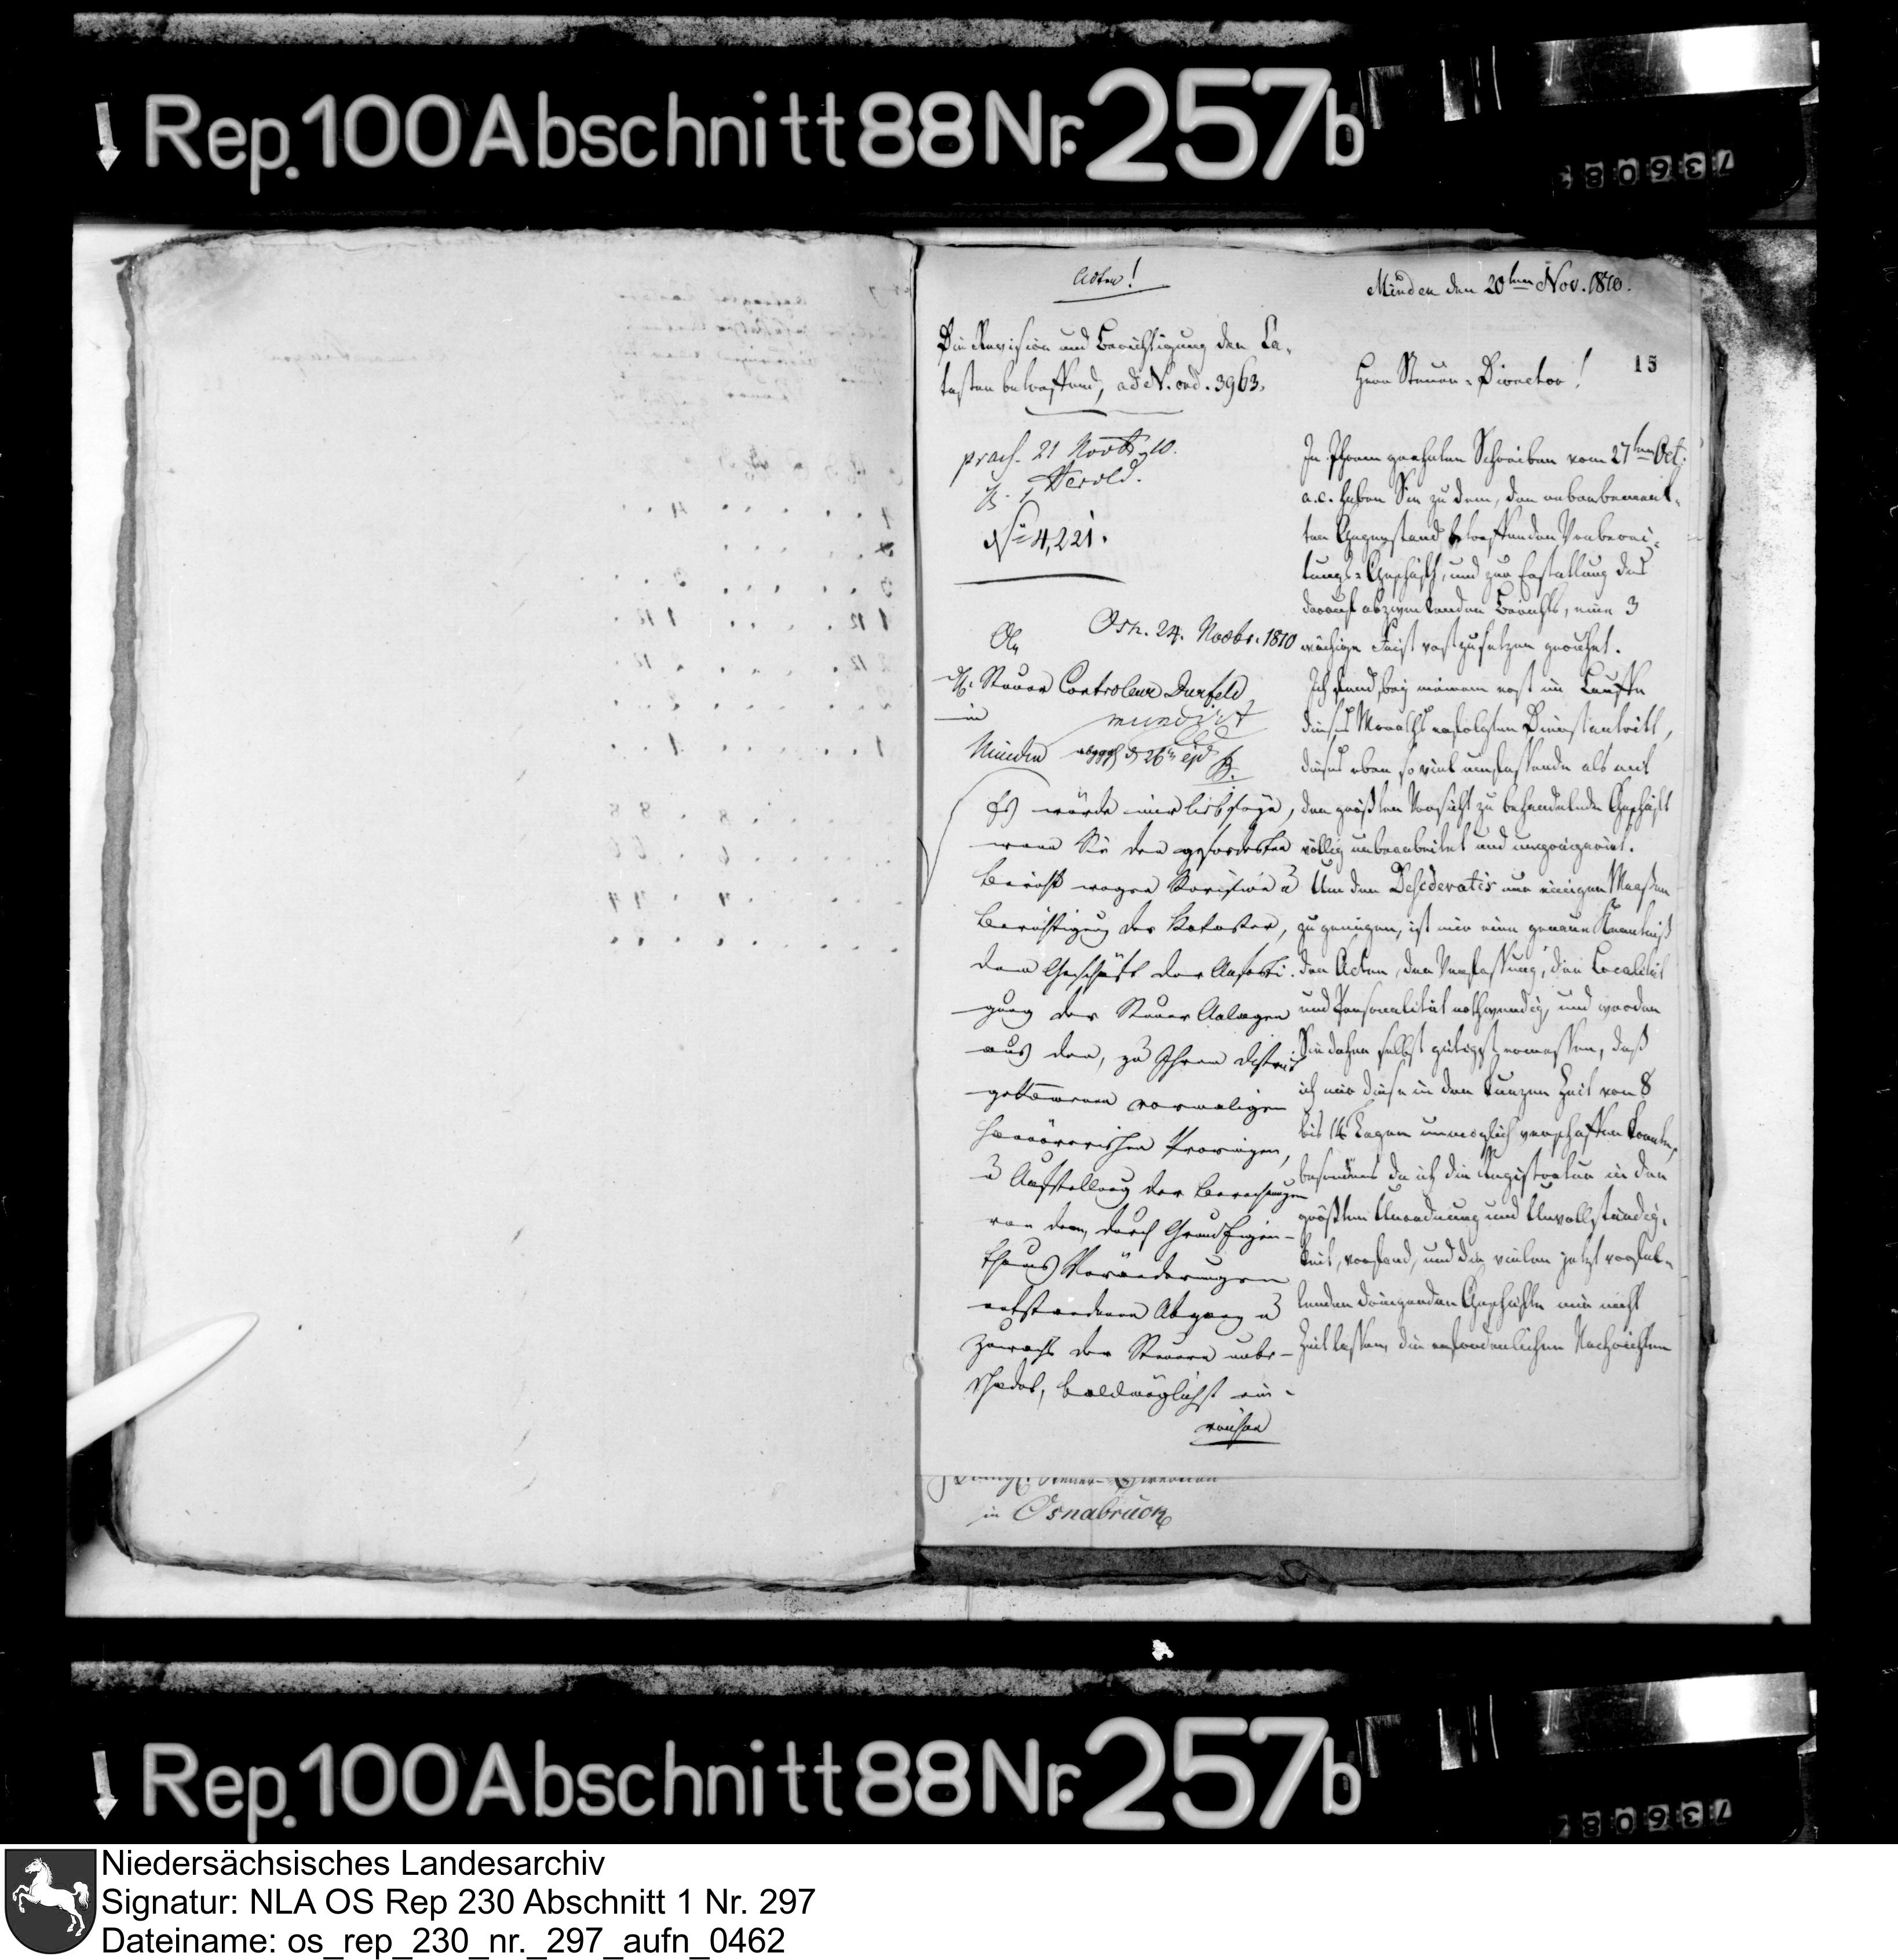 Rep. 100 Abschnitt 88 Nr. 257b
Acten!
Minden den 20ten Nov. 1810.
Die Revision und Berichtigung der Ca-
taster betreffend, ad N. ord. 3963.
Herr Steuer-Director!
15
praes. 21 Novbr 10.
Herold.
No 4,221.
Osn. 24. Novbr. 1810
An
H. Steuer Controleur Durfeld
in
mundirt
Minden abggg d 26t ejd
Es würde mir lieb seyn,
wenn Sie den geforderten
Bericht wegen Revision u
Berichtigung der Kataster,
dem Geschäft der Anferti-
gung der Steuer Anlagen
aus den, zu Ihrem District
gekommenen vormaligen
Hannöverischen Provinzen,
u Aufstellung der Berechnungen
von dem, durch Grund Eigen-
thums Veränderungen
entstandenen Abgang u
Zuwachs der Steuern unbe-
schadet, baldmöglichst ein-
reichen
In Ihrem geehrten Schreiben vom 27ten Oct.
a.c. haben Sie zu dem, den nebenbemerk-
ten Gegenstand betreffenden Vorberei-
tungs-Geschäft, und zur Erstattung des
darauf abzweckenden Berichts, eine 3
wöchige Frist vestzusetzen geruhet.
Ich fand, bey meinem erst im Lauffe
dieses Monaths erfolgten Dienstantritt,
dieses eben so viel umfassende als mit
der größten Vorsicht zu behandelnde Geschäft
völlig unbearbeitet und
Um den Desideratis nur einigen Maaßen
zu genügen, ist mir eine genaue Kenntniß
der Acten, der Verfassung, der Localität
und Personalität nothwendig, und werden
Sie daher selbst gütigst ermessen, daß
ich mir diese in der kurzen Zeit von 8
bis 14 Tagen unmöglich verschaffen konnte,
besonders da ich die Registratur in der
größten Unordnung und Unvollständig-
keit, vorfand, und die vielen jetzt vorfal-
lenden dringenden Geschäfte mir nicht
Zeit lassen, die erforderlichen Nachrichten
Steuer-Direction
in Osnabrück
Rep. 100 Abschnitt 88 Nr. 257b
Niedersächsisches Landesarchiv
Signatur: NLA OS Rep 230 Abschnitt 1 Nr. 297
Dateiname: os_rep_230_nr._297_aufn_0462